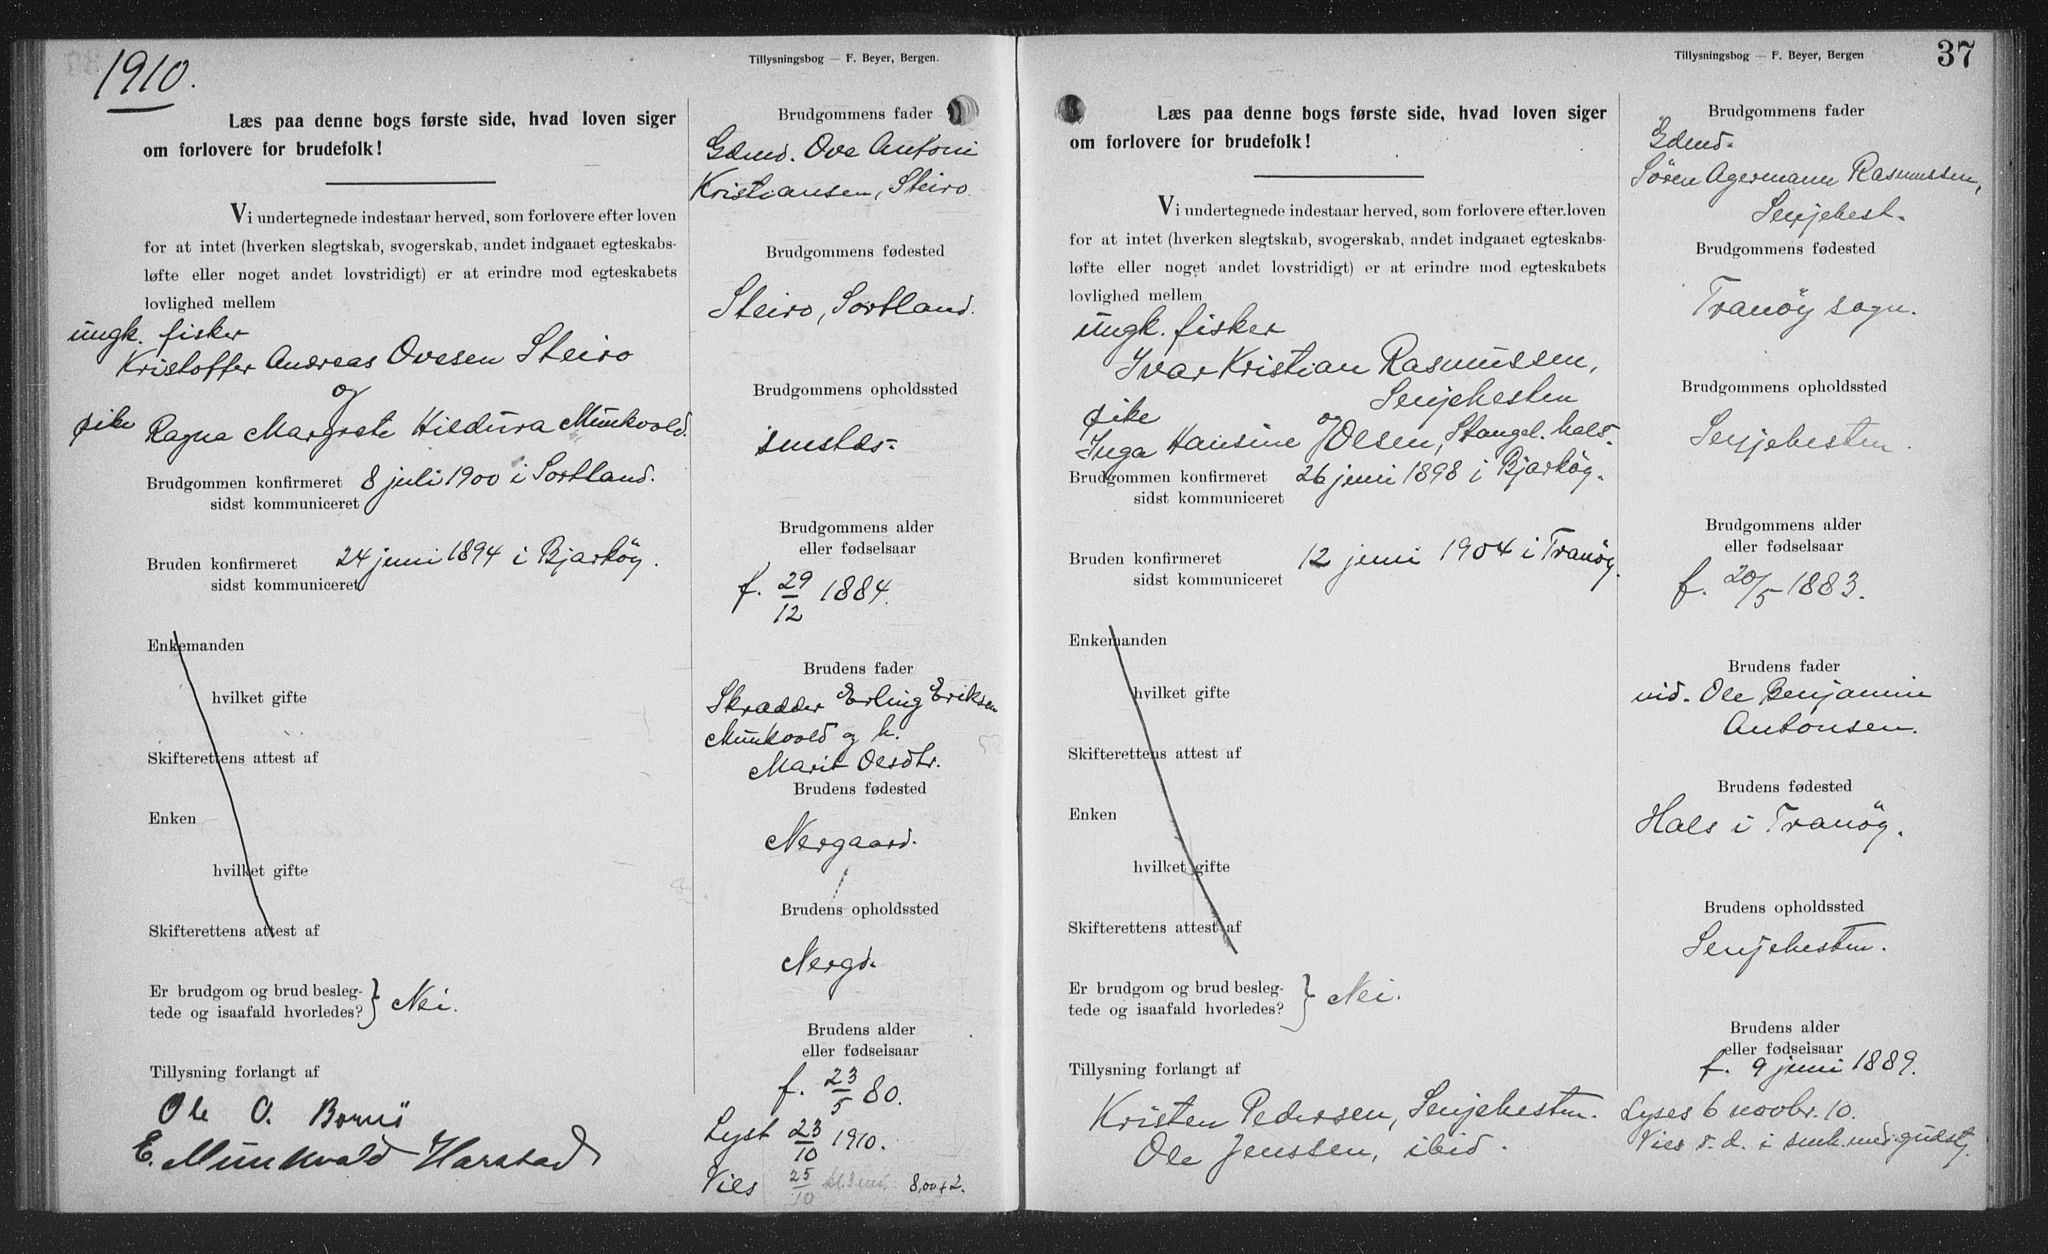 1910.
Tillysningsbog — F. Beyer, Bergen.
Læs paa denne bogs første side, hvad loven siger
om forlovere for brudefolk!
Vi undertegnede indestaar herved, som forlovere efter loven
for at intet (hverken slegtskab, svogerskab, andet indgaaet egteskabs-
løfte eller noget andet lovstridigt) er at erindre mod egteskabets
lovlighed mellem
ungk. fisker
Kristoffer Andreas Ovesen Steiro
og
pike Ragna Margrete Hildura Munkvold.
Brudgommen konfirmeret 8 juli 1900 i Sortland.
sidst kommuniceret
Bruden konfirmeret 24 juni 1894 i Bjarköy.
sidst kommuniceret
Enkemanden
hvilket gifte
Skifterettens attest af
Enken
hvilket gifte
Skifterettens attest af
Er brudgom og brud besleg-
tede og isaafald hvorledes? } Nei.
Tillysning forlangt af
Ole O.
E. Munkvold Harstad
Brudgommens fader
Gdmd. Ove Antoni
Kristiansen, Steiro.
Brudgommens fødested
Steiro, Sortland.
Brudgommens opholdssted
smstds-
Brudgommens alder
eller fødselsaar
f. 29/12 1884.
Brudens fader
Skrædder Erling Eriksen
Munkvold og h.
Marit Olsdtr.
Brudens fødested
Nergaard.
Brudens opholdssted
Nergd.
Brudens alder
eller fødselsaar
f. 23/5 80.
Lyst 23/10 1910.
Vies 25/10 8,00+2.
Tillysningsbog — F. Beyer, Bergen
37
Læs paa denne bogs første side, hvad loven siger
om forlovere for brudefolk!
Vi undertegnede indestaar herved, som forlovere efter loven
for at intet (hverken slegtskab, svogerskab, andet indgaaet egteskabs-
løfte eller noget andet lovstridigt) er at erindre mod egteskabets
lovlighed mellem
ungk. fisker
Ivar Kristian Rasmussen,
Senjehesten
pike og
Inga Hansine Olsen, Stangel. hals.
Brudgommen konfirmeret 26 juni 1898 i Bjarköy.
sidst kommuniceret
Bruden konfirmeret 12 juni 1904 i Tranöy.
sidst kommuniceret
Enkemanden
hvilket gifte
Skifterettens attest af
Enken
hvilket gifte
Skifterettens attest af
Er brudgom og brud besleg-
tede og isaafald hvorledes? } Nei.
Tillysning forlangt af
Kristen Pedersen, Senjehesten.
Ole Jenssen, ibid.
Brudgommens fader
Gdmd.
Sören Agermann Rasmussen,
Senjehest.
Brudgommens fødested
Tranöy sogn.
Brudgommens opholdssted
Senjehesten.
Brudgommens alder
eller fødselsaar
f. 20/5 1883.
Brudens fader
ind. Ole Benjamin
Antonsen.
Brudens fødested
Hals i Tranöy.
Brudens opholdssted
Senjehesten.
Brudens alder
eller fødselsaar
f. 9 juni 1889.
Lyses 6 novbr. 10.
Vies s. d. i smh. med gudstj.